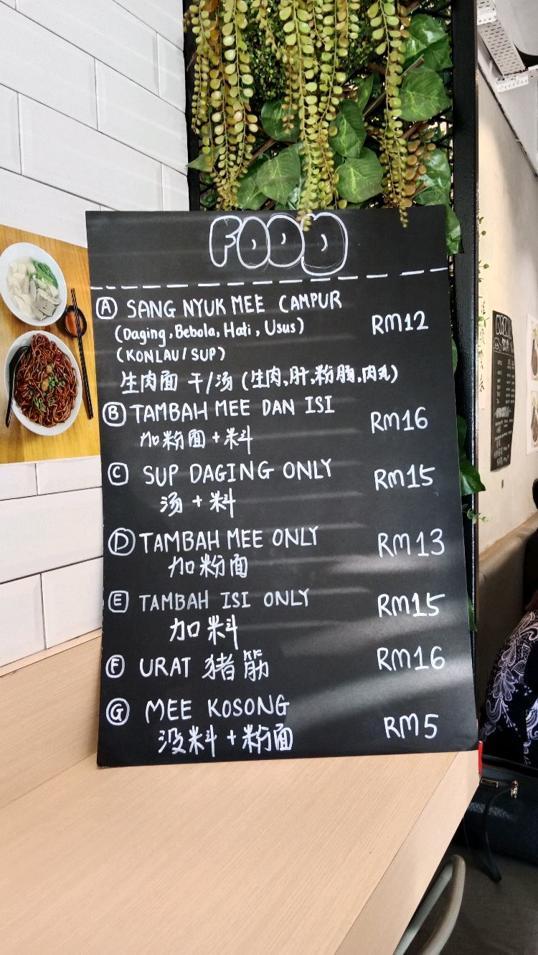 FOOD
Ⓐ SANG NYUK MEE CAMPUR
(Daging, Bebola, Hati, Usus) RM12
(KONLAU / SUP)
生肉面 干/汤 (生肉,肝,粉肠,肉丸)
Ⓑ TAMBAH MEE DAN ISI RM16
加粉面 + 料
Ⓒ SUP DAGING ONLY RM15
汤 + 料
Ⓓ TAMBAH MEE ONLY RM13
加粉面
Ⓔ TAMBAH ISI ONLY RM15
加料
Ⓕ URAT 猪筋 RM16
Ⓖ MEE KOSONG
没料 + 粉面 RM5